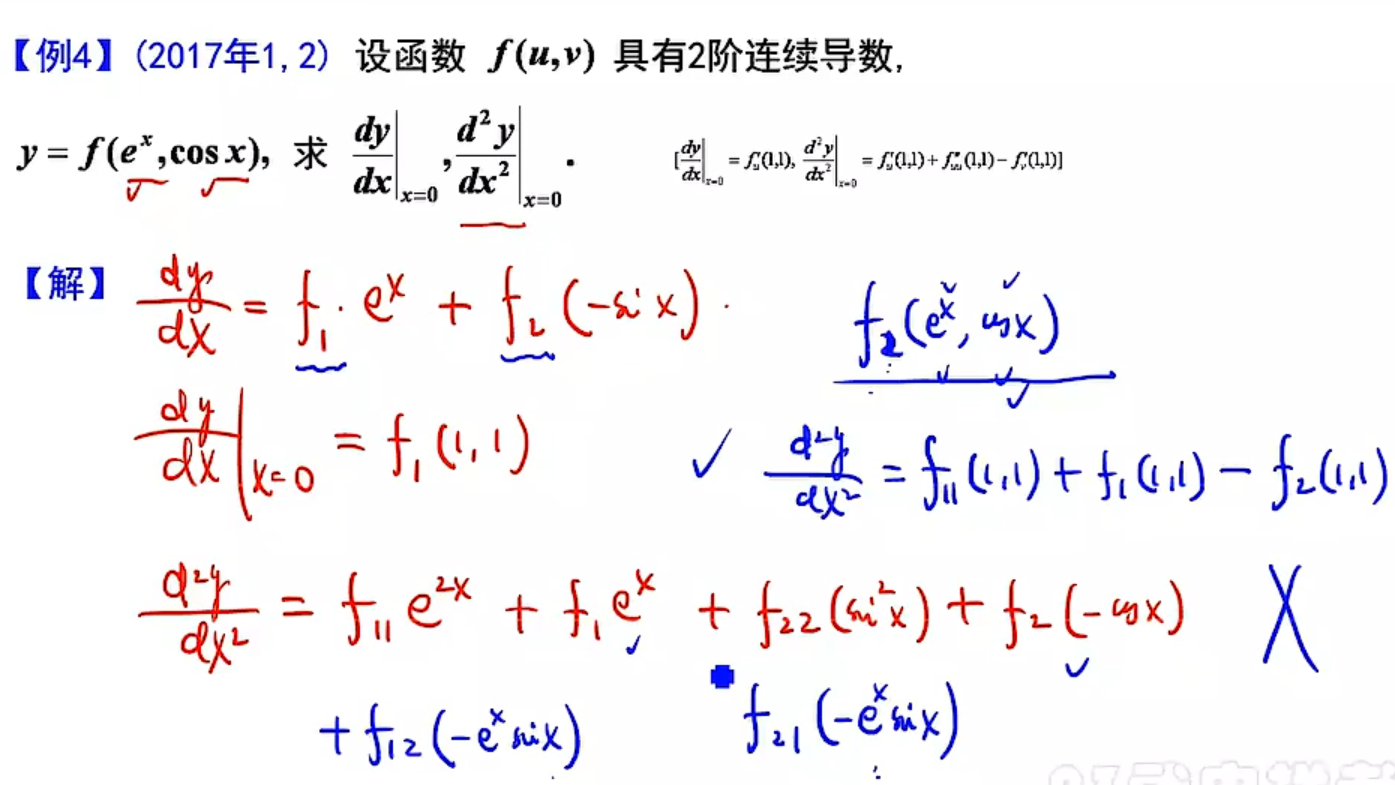 【例4】(2017年1,2) 设函数 f(u,v) 具有2阶连续导数,
y = f(eˣ,cos x), 求 dy/dx|ₓ₌₀, d²y/dx²|ₓ₌₀.
[dy/dx|ₓ₌₀ = f′ᵤ(1,1), d²y/dx²|ₓ₌₀ = f′ᵤ(1,1) + f″ᵤᵤ(1,1) − f′ᵥ(1,1)]
【解】 dy/dx = f₁·eˣ + f₂(−sin x).
f₂(eˣ, cos x)
dy/dx|ₓ₌₀ = f₁(1,1)
✓ d²y/dx² = f₁₁(1,1) + f₁(1,1) − f₂(1,1)
d²y/dx² = f₁₁e²ˣ + f₁eˣ + f₂₂(sin²x) + f₂(−cos x) X
+ f₁₂(−eˣ sin x) f₂₁(−eˣ sin x)